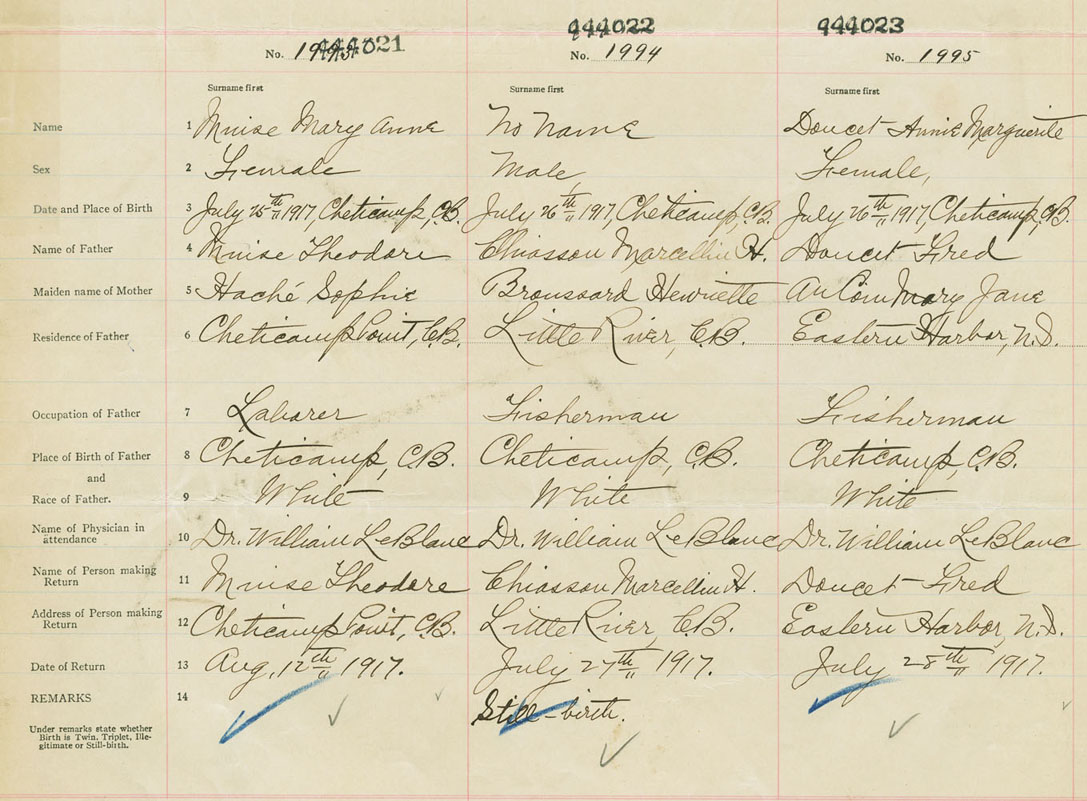 444021 444022 444023
No. 1993 No. 1994 No. 1995
Surname first Surname first Surname first
Name 1 Muise Mary Anne No Name Doucet Annie Marguerite
Sex 2 Female Male Female,
Date and Place of Birth 3 July 25th 1917, Cheticamp, C.B. July 26th 1917, Cheticamp, C.B. July 26th 1917, Cheticamp, C.B.
Name of Father 4 Muise Theodore Chiasson Marcellin H. Doucet Fred
Maiden name of Mother 5 Haché Sophie Broussard Henriette AuCoin Mary Jane
Residence of Father 6 Cheticamp Point, C.B. Little River, C.B. Eastern Harbor, N.S.
Occupation of Father 7 Laborer Fisherman Fisherman
Place of Birth of Father 8 Cheticamp, C.B. Cheticamp, C.B. Cheticamp, C.B.
and
Race of Father. 9 White White White
Name of Physician in
attendance 10 Dr. William LeBlanc Dr. William LeBlanc Dr. William LeBlanc
Name of Person making
Return 11 Muise Theodore Chiasson Marcellin H. Doucet Fred
Address of Person making
Return 12 Cheticamp Point, C.B. Little River, C.B. Eastern Harbor, N.S.
Date of Return 13 Aug. 12th 1917. July 27th 1917. July 28th 1917.
REMARKS 14 Still-birth.
Under remarks state whether
Birth is Twin, Triplet, Ille-
gitimate or Still-birth.